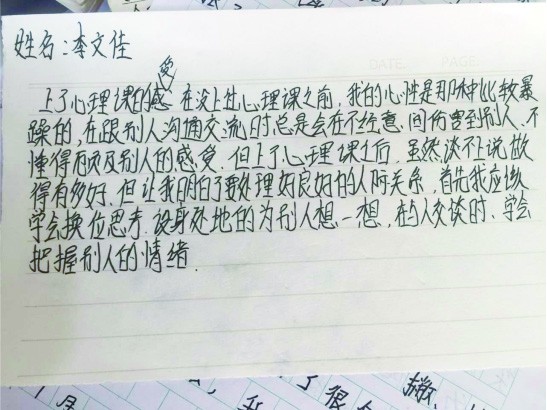 姓名:李文佳
DATE PAGE
上了心理课的感受 在没上过心理课之前,我的心性是那种比较暴
躁的,在跟别人沟通交流时总是会在不经意间伤害到别人、不
懂得顾及别人的感受.但上了心理课之后,虽然谈不上说做
得有多好.但让我明白了要处理好良好的人际关系,首先我应该
学会换位思考.设身处地的为别人想一想,在与人交谈时、学会
把握别人的情绪.
了很